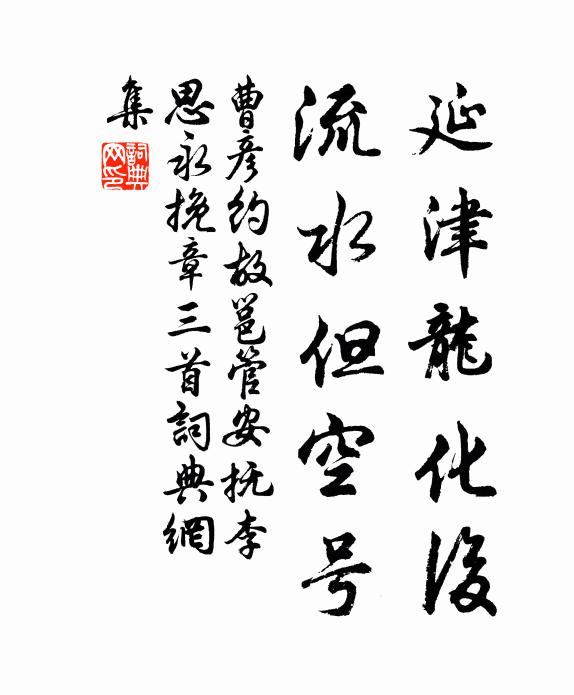 延津龍化後
流水但空号
曹彦約故邕管安抚李
思永挽章三首詞典網
集
詞典
网印